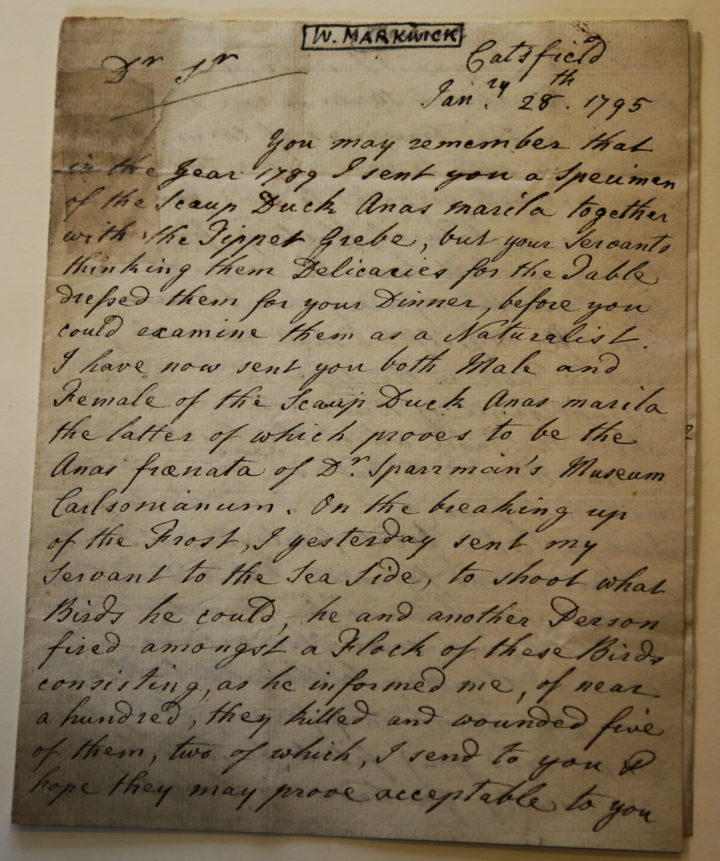 W. MARKWICK
Catsfield
Dr Sr
Janry. 28th. 1795
You may remember that
in the Year 1789 I sent you a Specimen
of the Scaup Duck Anas marila together
with the Tippet Grebe, but your Servants
thinking them Delicacies for the Table
dressed them for your Dinner, before you
could examine them as a Naturalist.
I have now sent you both Male and
Female of the Scaup Duck Anas marila
the latter of which proves to be the
Anas frænata of Dr. Sparrman's Museum
Carlsonianum. On the breaking up
of the Frost, I yesterday sent my
Servant to the Sea Side, to shoot what
Birds he could, he and another Person
fired amongst a Flock of these Birds
consisting, as he informed me, of near
a hundred, they killed and wounded five
of them, two of which, I send to you &
hope they may prove acceptable to you